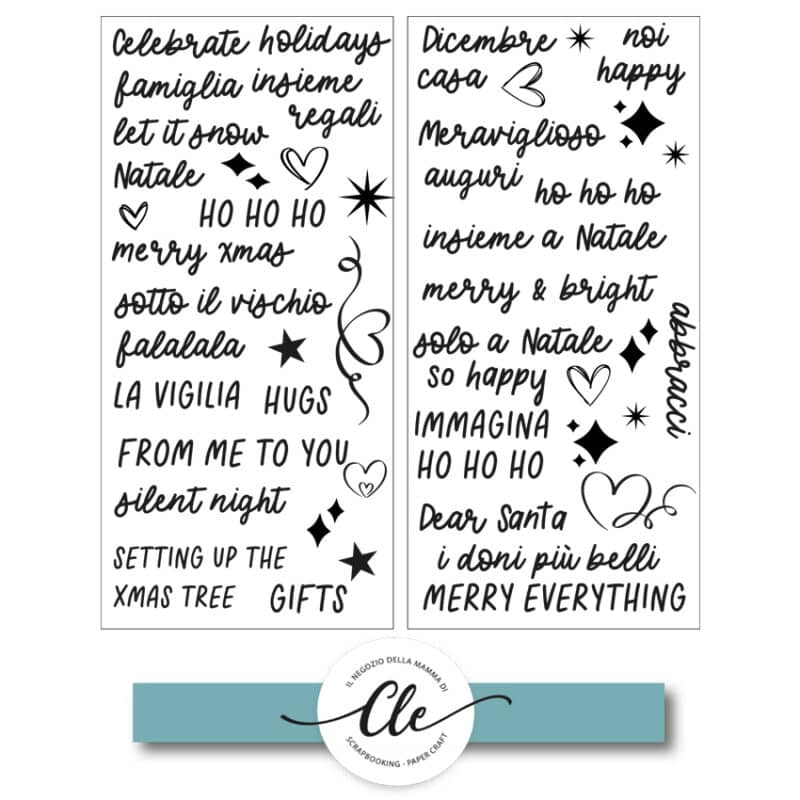 Celebrate holidays
famiglia insieme
regali
let it snow
Natale
HO HO HO
merry xmas
sotto il vischio
falalala
LA VIGILIA HUGS
FROM ME TO YOU
silent night
SETTING UP THE
XMAS TREE
GIFTS
Dicembre
noi
casa
happy
Meraviglioso
auguri
ho ho ho
insieme a Natale
merry & bright
abbracci
solo a Natale
so happy
IMMAGINA
HO HO HO
Dear Santa
i doni più belli
MERRY EVERYTHING
IL NEGOZIO DELLA MAMMA DI
Cle
SCRAPBOOKING - PAPER CRAFT